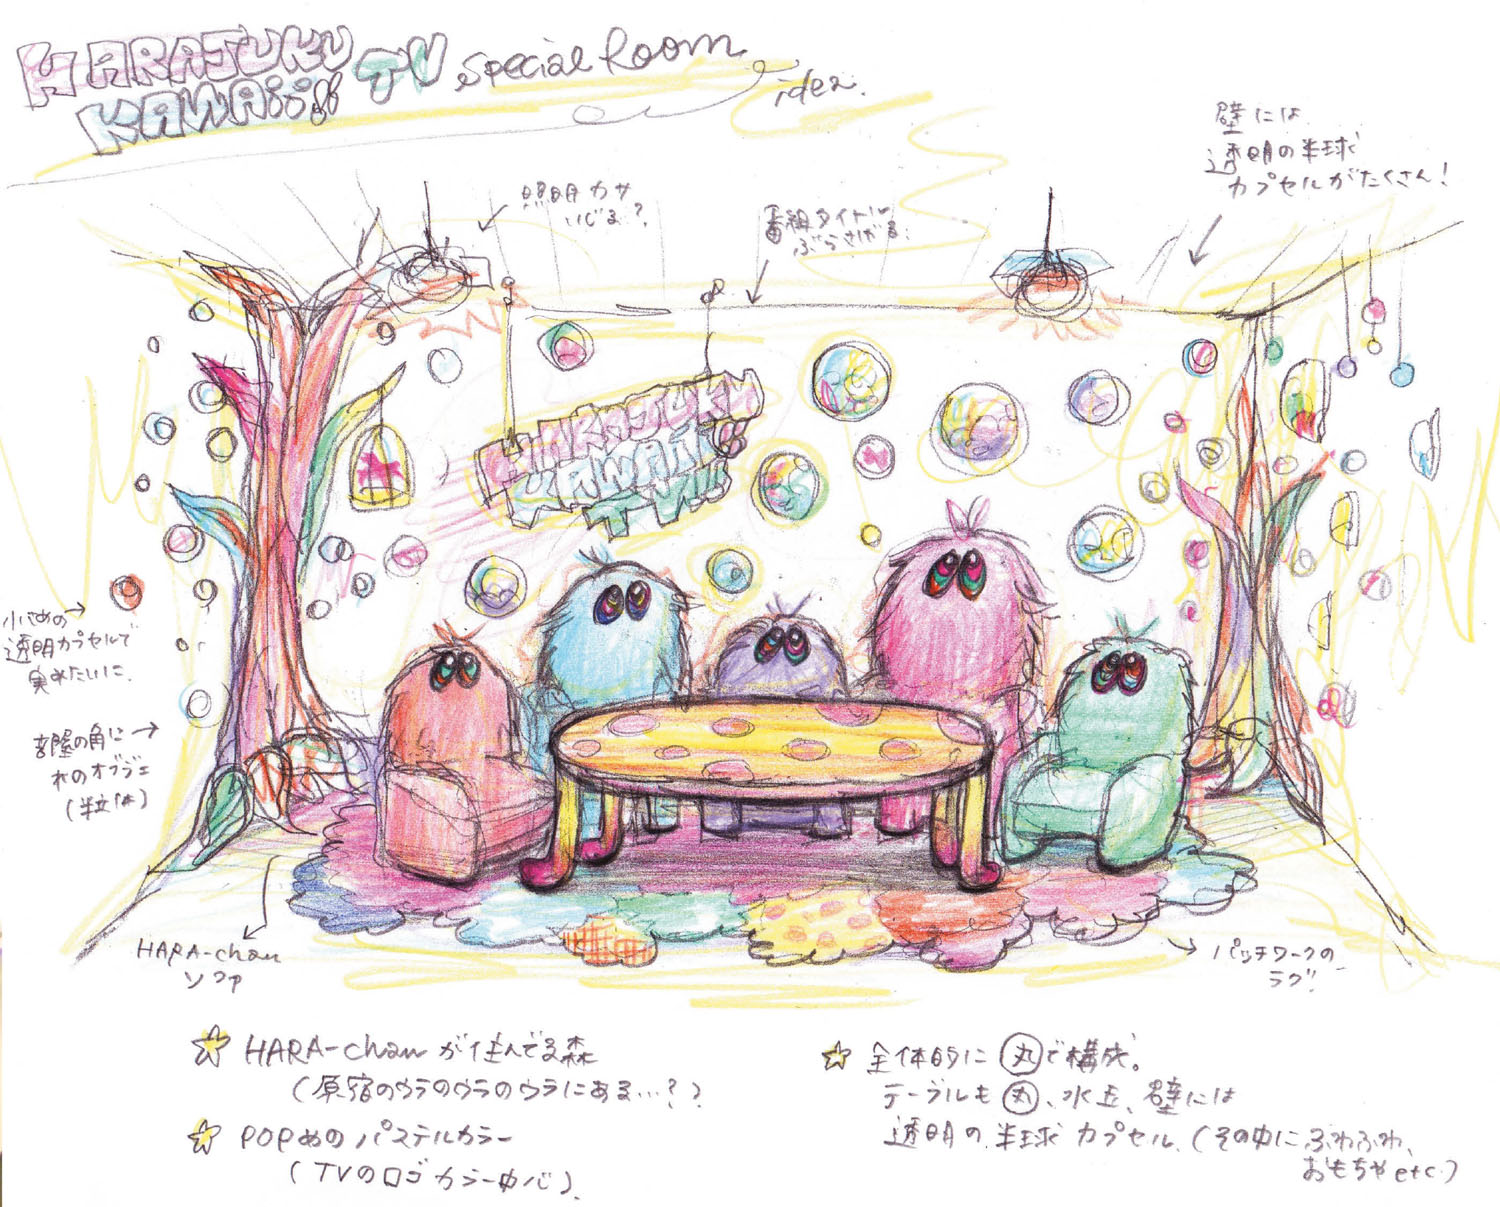 HARAJUKU
KAWAii!! TV Special Room
idea.
壁には
透明の半球
カプセルがたくさん!
照明カサ
いじる?
番組タイトル
ぶらさがる.
HARAJUKU
KAWAii!!
TV
小さめの
透明カプセルで
実みたいに.
部屋の角に
木のオブジェ
(半立体)
HARA-chan
ソファ
パッチワークの
ラグ!
☆ HARA-chanが住んでる森
(原宿のウラのウラのウラにある…?)
☆ POPめのパステルカラー
(TVのロゴカラー中心).
☆ 全体的に丸で構成。
テーブルも丸、水玉、壁には
透明の半球カプセル.(その中にふわふわ、
おもちゃetc.)